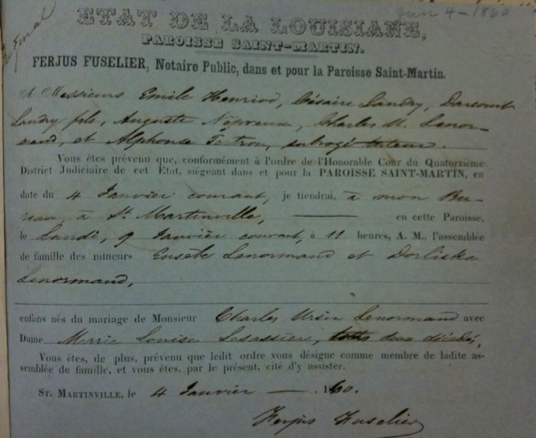 Jan 4 - 1860
ETAT DE LA LOUISIANE,
PAROISSE SAINT-MARTIN.
FERJUS FUSELIER, Notaire Public, dans et pour la Paroisse Saint-Martin.
A Messieurs Emile Henriod, Césaire Landry, Darcourt
Landry fils, Auguste Charles M. Lenor-
mand, et Alphonse subrogé tuteur.
Vous êtes prévenu que, conformément à l'ordre de l'Honorable Cour du Quatorzième
District Judiciaire de cet Etat, siégeant dans et pour la PAROISSE SAINT-MARTIN, en
date du 4 Janvier courant, je tiendrai, à mon Bu-
reau, à St Martinville, en cette Paroisse.
le Lundi, 9 Janvier courant, à 11 heures, A. M., l'assemblée
de famille des mineurs Eusèbe Lenormand et Dorliska
Lenormand,
enfans nés du mariage de Monsieur Charles Ursin Lenormand avec
Dame Louise tous deux décédés,
Vous êtes, de plus, prévenu que ledit ordre vous désigne comme membre de ladite as-
semblée de famille, et vous êtes, par le présent, cité d'y assister.
ST. MARTINVILLE, le 4 Janvier — 1860.
Ferjus Fuselier